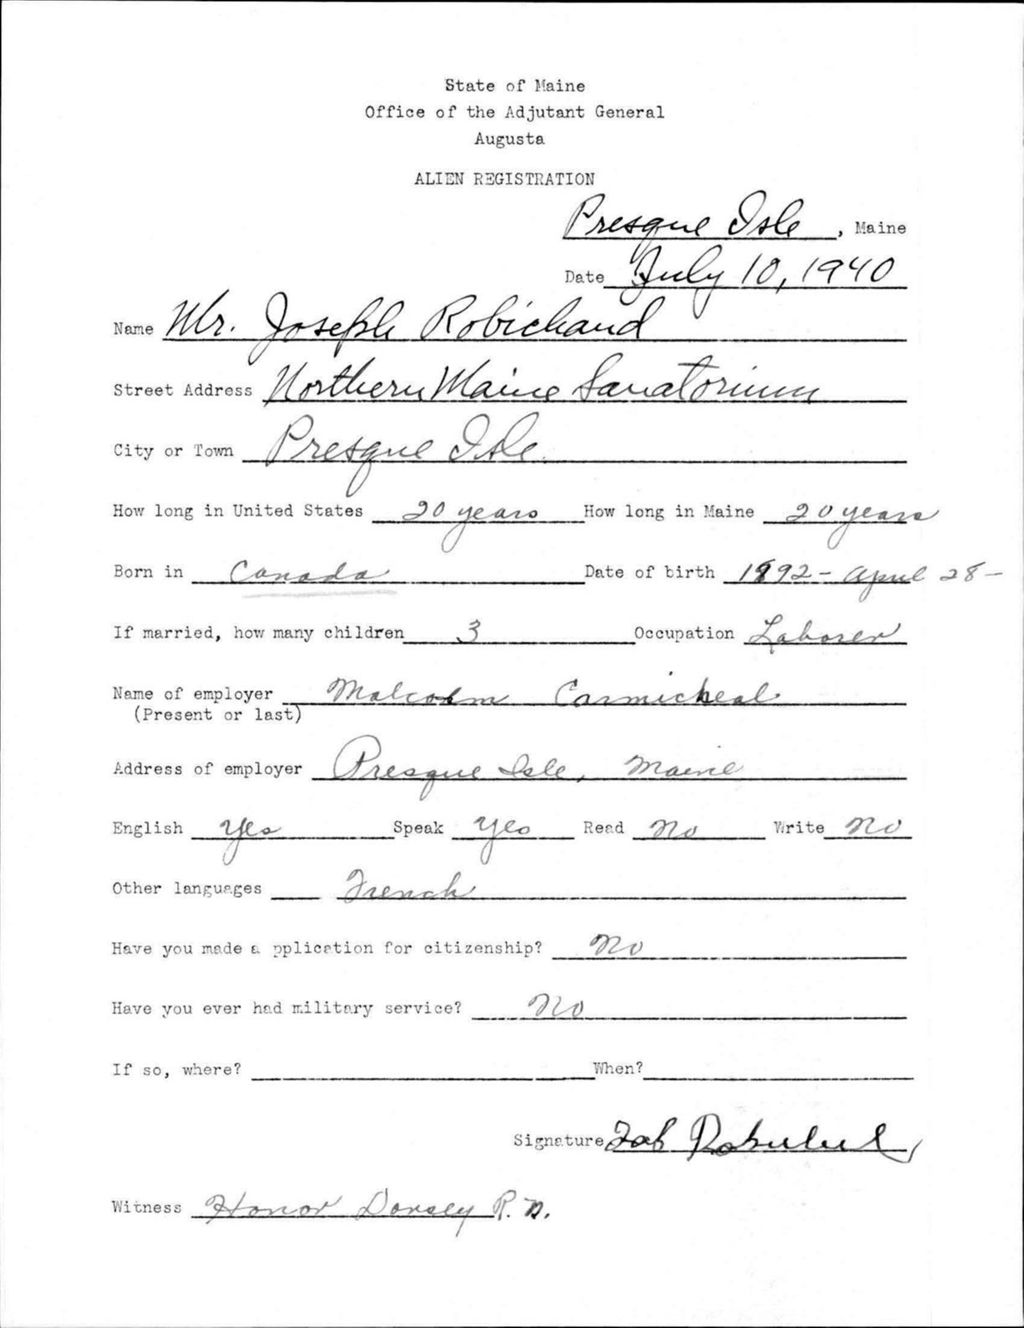 State of Maine
Office of the Adjutant General
Augusta
ALIEN REGISTRATION
Presque Isle, Maine
Date July 10, 1940
Name Mr. Joseph Robichaud
Street Address Northern Maine Sanatorium
City or Town Presque Isle.
How long in United States 20 years How long in Maine 20 years
Born in Canada Date of birth 1892 - April 28 -
If married, how many children 3 Occupation Laborer
Name of employer Malcolm Carmicheal
(Present or last)
Address of employer Presque Isle, Maine
English Yes Speak Yes Read No Write No
Other languages French
Have you made a pplication for citizenship? No
Have you ever had military service? No
If so, where? When?
Signature
Witness Honor Dorsey R. N.